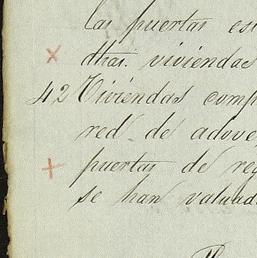 las puertas es
dhas. viviendas
42 Viviendas comp
red de adove
puertas de reg
se han valuad